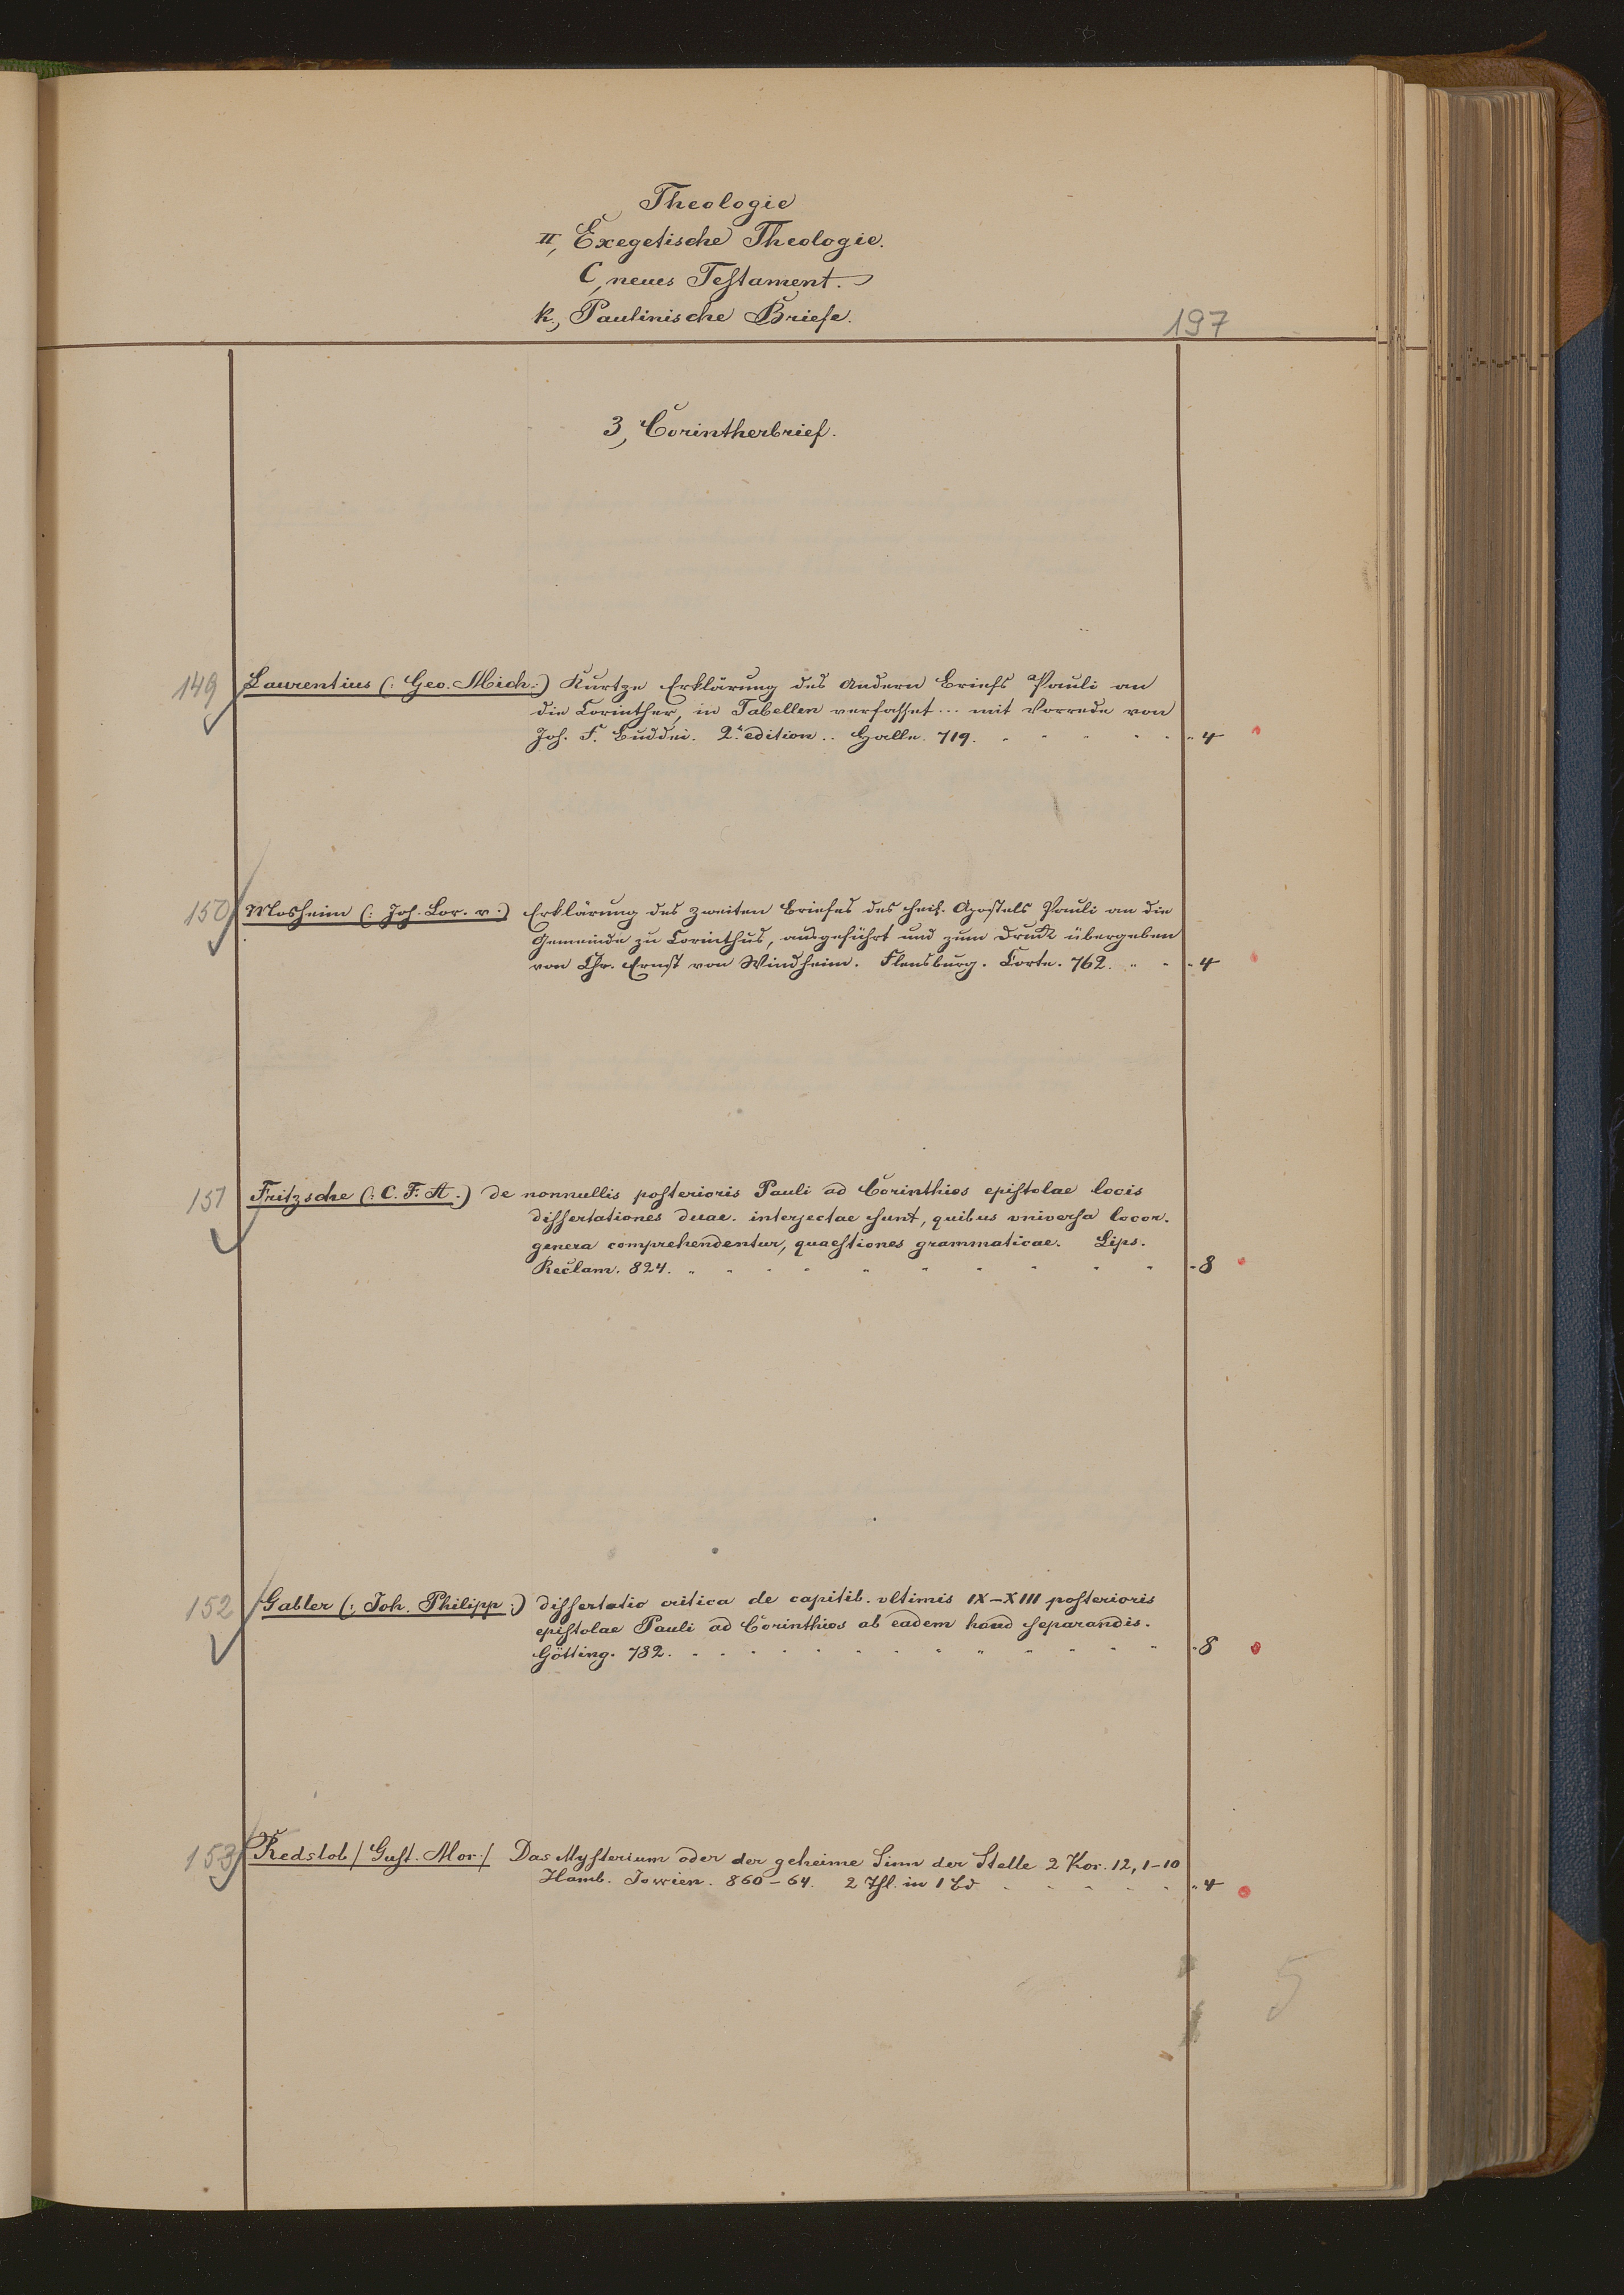 Theologie
II, Exegetische Theologie.
C, neues Testament.
k., Paulinische Briefe.
197
3, Corintherbrief.
149 Laurentius (: Geo. Mich:) Kurtze Erklärung des andern Briefs Pauli an
die Corinther, in Tabellen verfasset... mit Vorrede von
Joh. F. Buddei. 2.te edition.. Halle. 719. " 4
150 Mosheim (: Joh. Lor. v.) Erklärung des zweiten Briefes des heil. Apostels Pauli an die
Gemeinde zu Corinthus, ausgeführt und zum Druck übergeben
von Chr. Ernst von Windheim. Flensburg. Korte. 762. " 4
151 Fritzsche (: C. F. A.) de nonnullis posterioris Pauli ad Corinthios epistolae locis
dissertationes duae. interjectae sunt, quibus vniversa locor.
genera comprehendentur, quaestiones grammaticae. Lips.
Reclam. 824. " 8
152 Gabler (: Joh. Philipp:) dissertatio critica de capitib. vltimis IX–XIII posterioris
epistolae Pauli ad Corinthios ab eadem haud separandis.
Götting. 782. " 8
153 Redslob / Gust. Mor:/ Das Mysterium oder der geheime Sinn der Stelle 2 Kor. 12, 1–10
Hamb. Jowien. 860–64. 2 Thl. in 1 Bd " 4
5